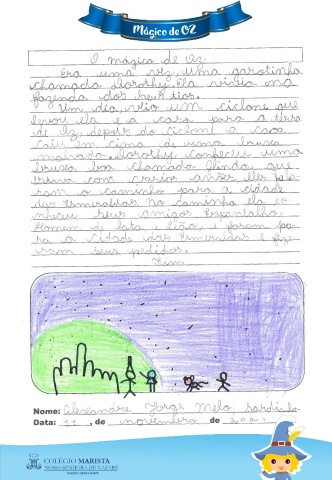 Mágico de OZ
O mágico de Oz
Era uma vez uma garotinha
chamada Dorothy. Ela vivia na
fazenda dos seus tios.
Um dia, veio um ciclone que
levou ela e a casa para a terra
de Oz, depois do ciclone a casa
caiu em cima de uma bruxa
malvada. Dorothy conheceu uma
bruxa boa chamada Glinda, que
estava com vários anões eles
ram o caminho para a cidade
das Esmeraldas. No caminho ela co-
nheceu seus amigos Espantalho,
Homem de lata e Leão, e foram pa-
ra a cidade das Esmeraldas e fize-
ram seus pedidos.
Fim
Nome: Alexandre Jorge Melo
Data: 11, de novembro de
COLÉGIO MARISTA
NOSSA SENHORA DE NAZARÉ